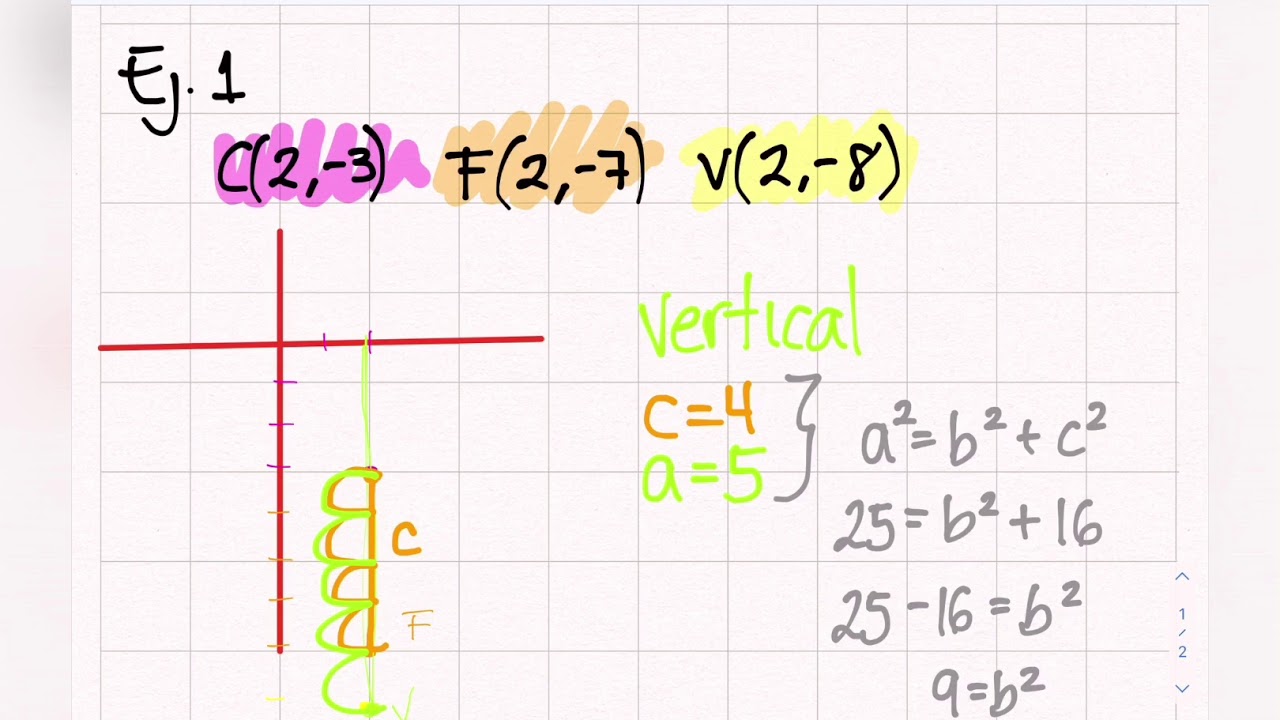 Ej. 1
C(2,-3) F(2,-7) V(2,-8)
vertical
c=4
a=5
a²=b²+c²
25=b²+16
25-16=b²
9=b²
C
F
V
1
/
2